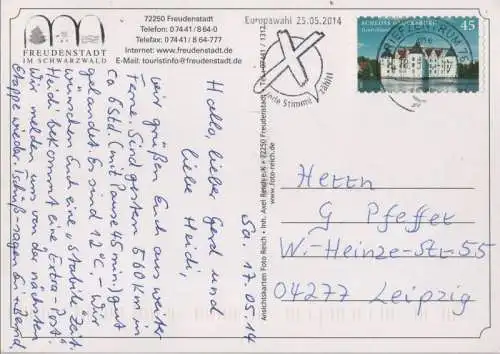 FREUDENSTADT
IM SCHWARZWALD
72250 Freudenstadt
Telefon: 0 74 41 / 8 64-0
Telefax: 0 74 41 / 8 64-777
Internet: www.freudenstadt.de
E-Mail: touristinfo@freudenstadt.de
Sa. 17.05.14
Hallo, lieber Gerd und
liebe Heidi,
wir grüßen Euch aus weiter
Ferne. Sind gestern 540 km in
ca 6 Std. (mit Pause 45 min.) gut
gelandet. Es sind 12°C. - Wir
wünschen Euch eine "stabile" Zeit.
Heidi bekommt eine Extra-Post.
Wir melden uns von der nächsten
Etappe wieder. Tschüß sagen
Ansichtskarten Foto Reich • Inh. Axel • 72250 Freudenstadt • Tel. 07441 /
www.foto-reich.de
Europawahl 25.05.2014
Jede Stimme zählt!
BRIEFZENTRUM
SCHLOSS GLÜCKSBURG
Deutschland
45
Herrn
G Pfeffer
W.-Heinze-Str. 55
04277 Leipzig